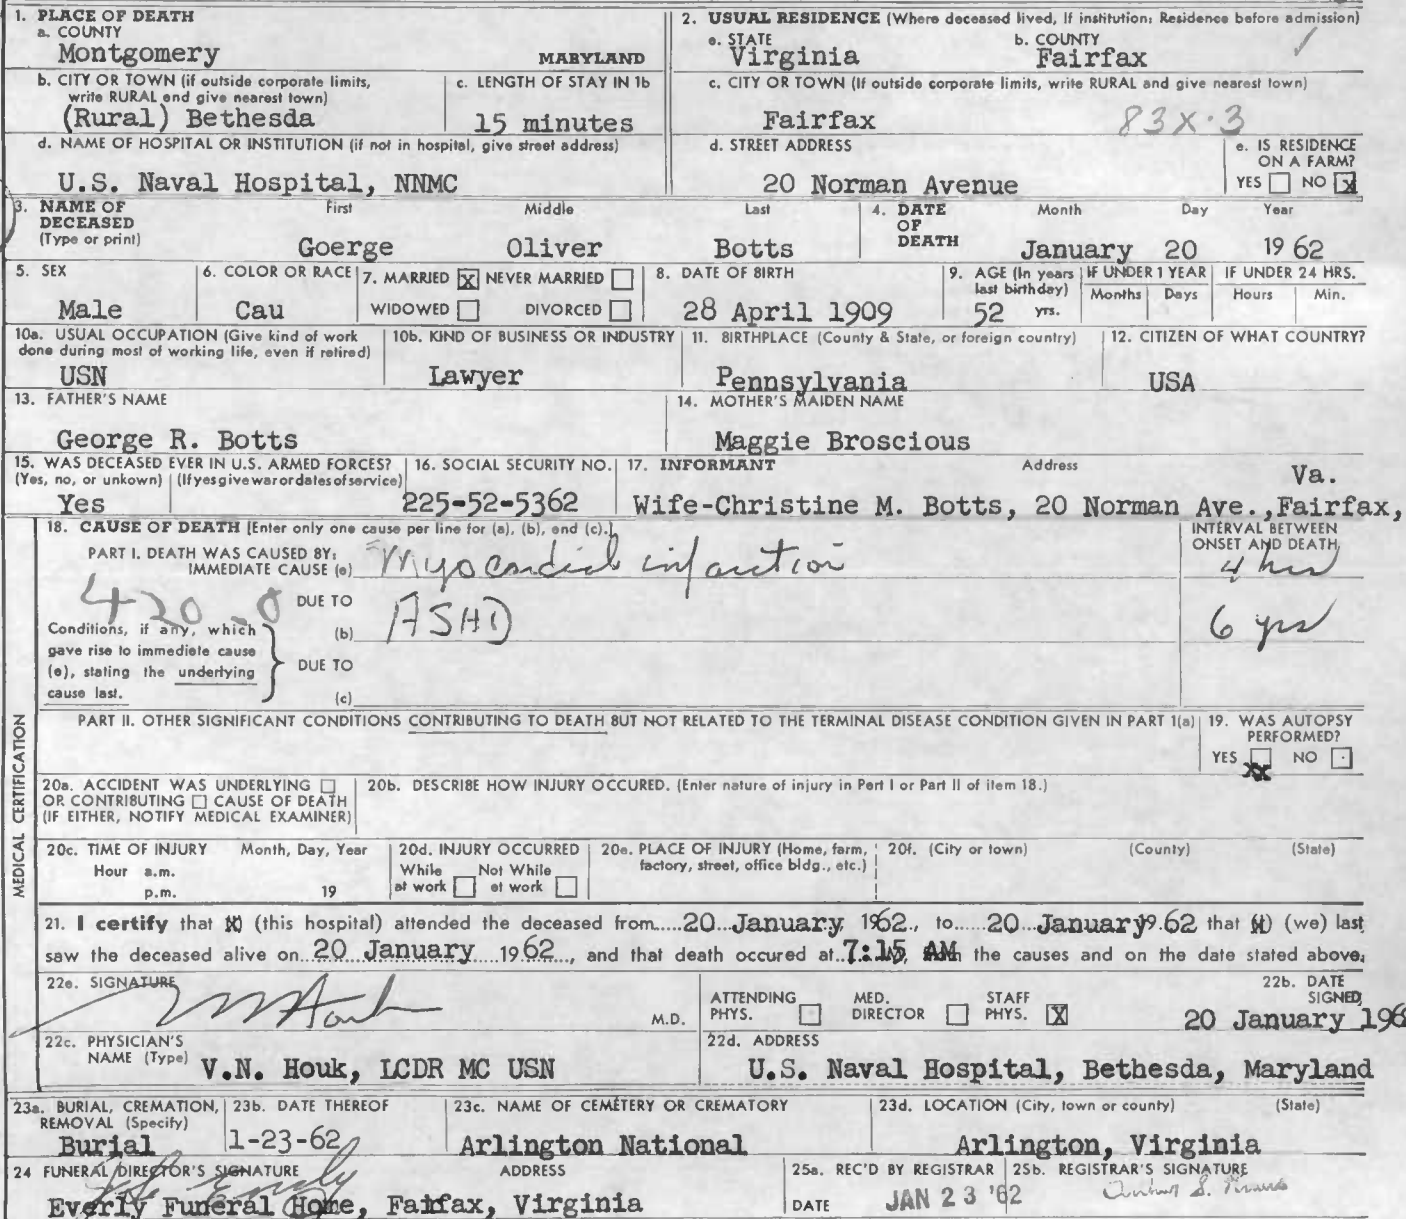 1. PLACE OF DEATH
a. COUNTY
Montgomery MARYLAND
2. USUAL RESIDENCE (Where deceased lived, If institution: Residence before admission)
a. STATE b. COUNTY
Virginia Fairfax
b. CITY OR TOWN (if outside corporate limits, write RURAL end give nearest town)
(Rural) Bethesda
c. LENGTH OF STAY IN 1b
15 minutes
c. CITY OR TOWN (If outside corporate limits, write RURAL and give nearest town)
Fairfax 83X·3
d. NAME OF HOSPITAL OR INSTITUTION (if not in hospital, give street address)
U.S. Naval Hospital, NNMC
d. STREET ADDRESS
20 Norman Avenue
e. IS RESIDENCE
ON A FARM?
YES NO X
3. NAME OF
DECEASED
(Type or print)
First Middle Last
Goerge Oliver Botts
4. DATE
OF
DEATH
Month Day Year
January 20 19 62
5. SEX
Male
6. COLOR OR RACE
Cau
7. MARRIED X NEVER MARRIED
WIDOWED DIVORCED
8. DATE OF BIRTH
28 April 1909
9. AGE (In years
last birthday)
52 yrs.
IF UNDER 1 YEAR
Months Days
IF UNDER 24 HRS.
Hours Min.
10a. USUAL OCCUPATION (Give kind of work
done during most of working life, even if retired)
USN
10b. KIND OF BUSINESS OR INDUSTRY
Lawyer
11. BIRTHPLACE (County & State, or foreign country)
Pennsylvania
12. CITIZEN OF WHAT COUNTRY?
USA
13. FATHER'S NAME
George R. Botts
14. MOTHER'S MAIDEN NAME
Maggie Broscious
15. WAS DECEASED EVER IN U.S. ARMED FORCES?
(Yes, no, or unkown) (If yes give war or dates of service)
Yes
16. SOCIAL SECURITY NO.
225-52-5362
17. INFORMANT Address
Va.
Wife-Christine M. Botts, 20 Norman Ave.,Fairfax,
MEDICAL CERTIFICATION
18. CAUSE OF DEATH [Enter only one cause per line for (a), (b), end (c).]
INTERVAL BETWEEN
ONSET AND DEATH
PART I. DEATH WAS CAUSED BY:
IMMEDIATE CAUSE (a) Myocardial infarction 4 hrs
420-0
DUE TO
(b) ASHD 6 yrs
Conditions, if any, which
gave rise to immediete cause
(e), stating the underlying
cause last.
DUE TO
(c)
PART II. OTHER SIGNIFICANT CONDITIONS CONTRIBUTING TO DEATH BUT NOT RELATED TO THE TERMINAL DISEASE CONDITION GIVEN IN PART 1(a)
19. WAS AUTOPSY
PERFORMED?
YES NO
XX
20a. ACCIDENT WAS UNDERLYING
OR CONTRIBUTING CAUSE OF DEATH
(IF EITHER, NOTIFY MEDICAL EXAMINER)
20b. DESCRIBE HOW INJURY OCCURED. (Enter nature of injury in Part I or Part II of item 18.)
20c. TIME OF INJURY Month, Day, Year
Hour a.m.
p.m. 19
20d. INJURY OCCURRED
While Not While
at work at work
20e. PLACE OF INJURY (Home, farm,
factory, street, office bldg., etc.)
20f. (City or town) (County) (State)
21. I certify that (X) (this hospital) attended the deceased from.....20...January, 1962., to.....20...January 19.62 that (X) (we) last
saw the deceased alive on..20..January....19.62.., and that death occured at..7:15 AM the causes and on the date stated above.
22a. SIGNATURE
M.D.
ATTENDING
PHYS.
MED.
DIRECTOR
STAFF
PHYS. X
22b. DATE
SIGNED
20 January 196
22c. PHYSICIAN'S
NAME (Type) V.N. Houk, LCDR MC USN
22d. ADDRESS
U.S. Naval Hospital, Bethesda, Maryland
23a. BURIAL, CREMATION,
REMOVAL (Specify)
Burial
23b. DATE THEREOF
1-23-62
23c. NAME OF CEMETERY OR CREMATORY
Arlington National
23d. LOCATION (City, town or county) (State)
Arlington, Virginia
24 FUNERAL DIRECTOR'S SIGNATURE ADDRESS
Everly Funeral Home, Fairfax, Virginia
25a. REC'D BY REGISTRAR
DATE JAN 23 '62
25b. REGISTRAR'S SIGNATURE